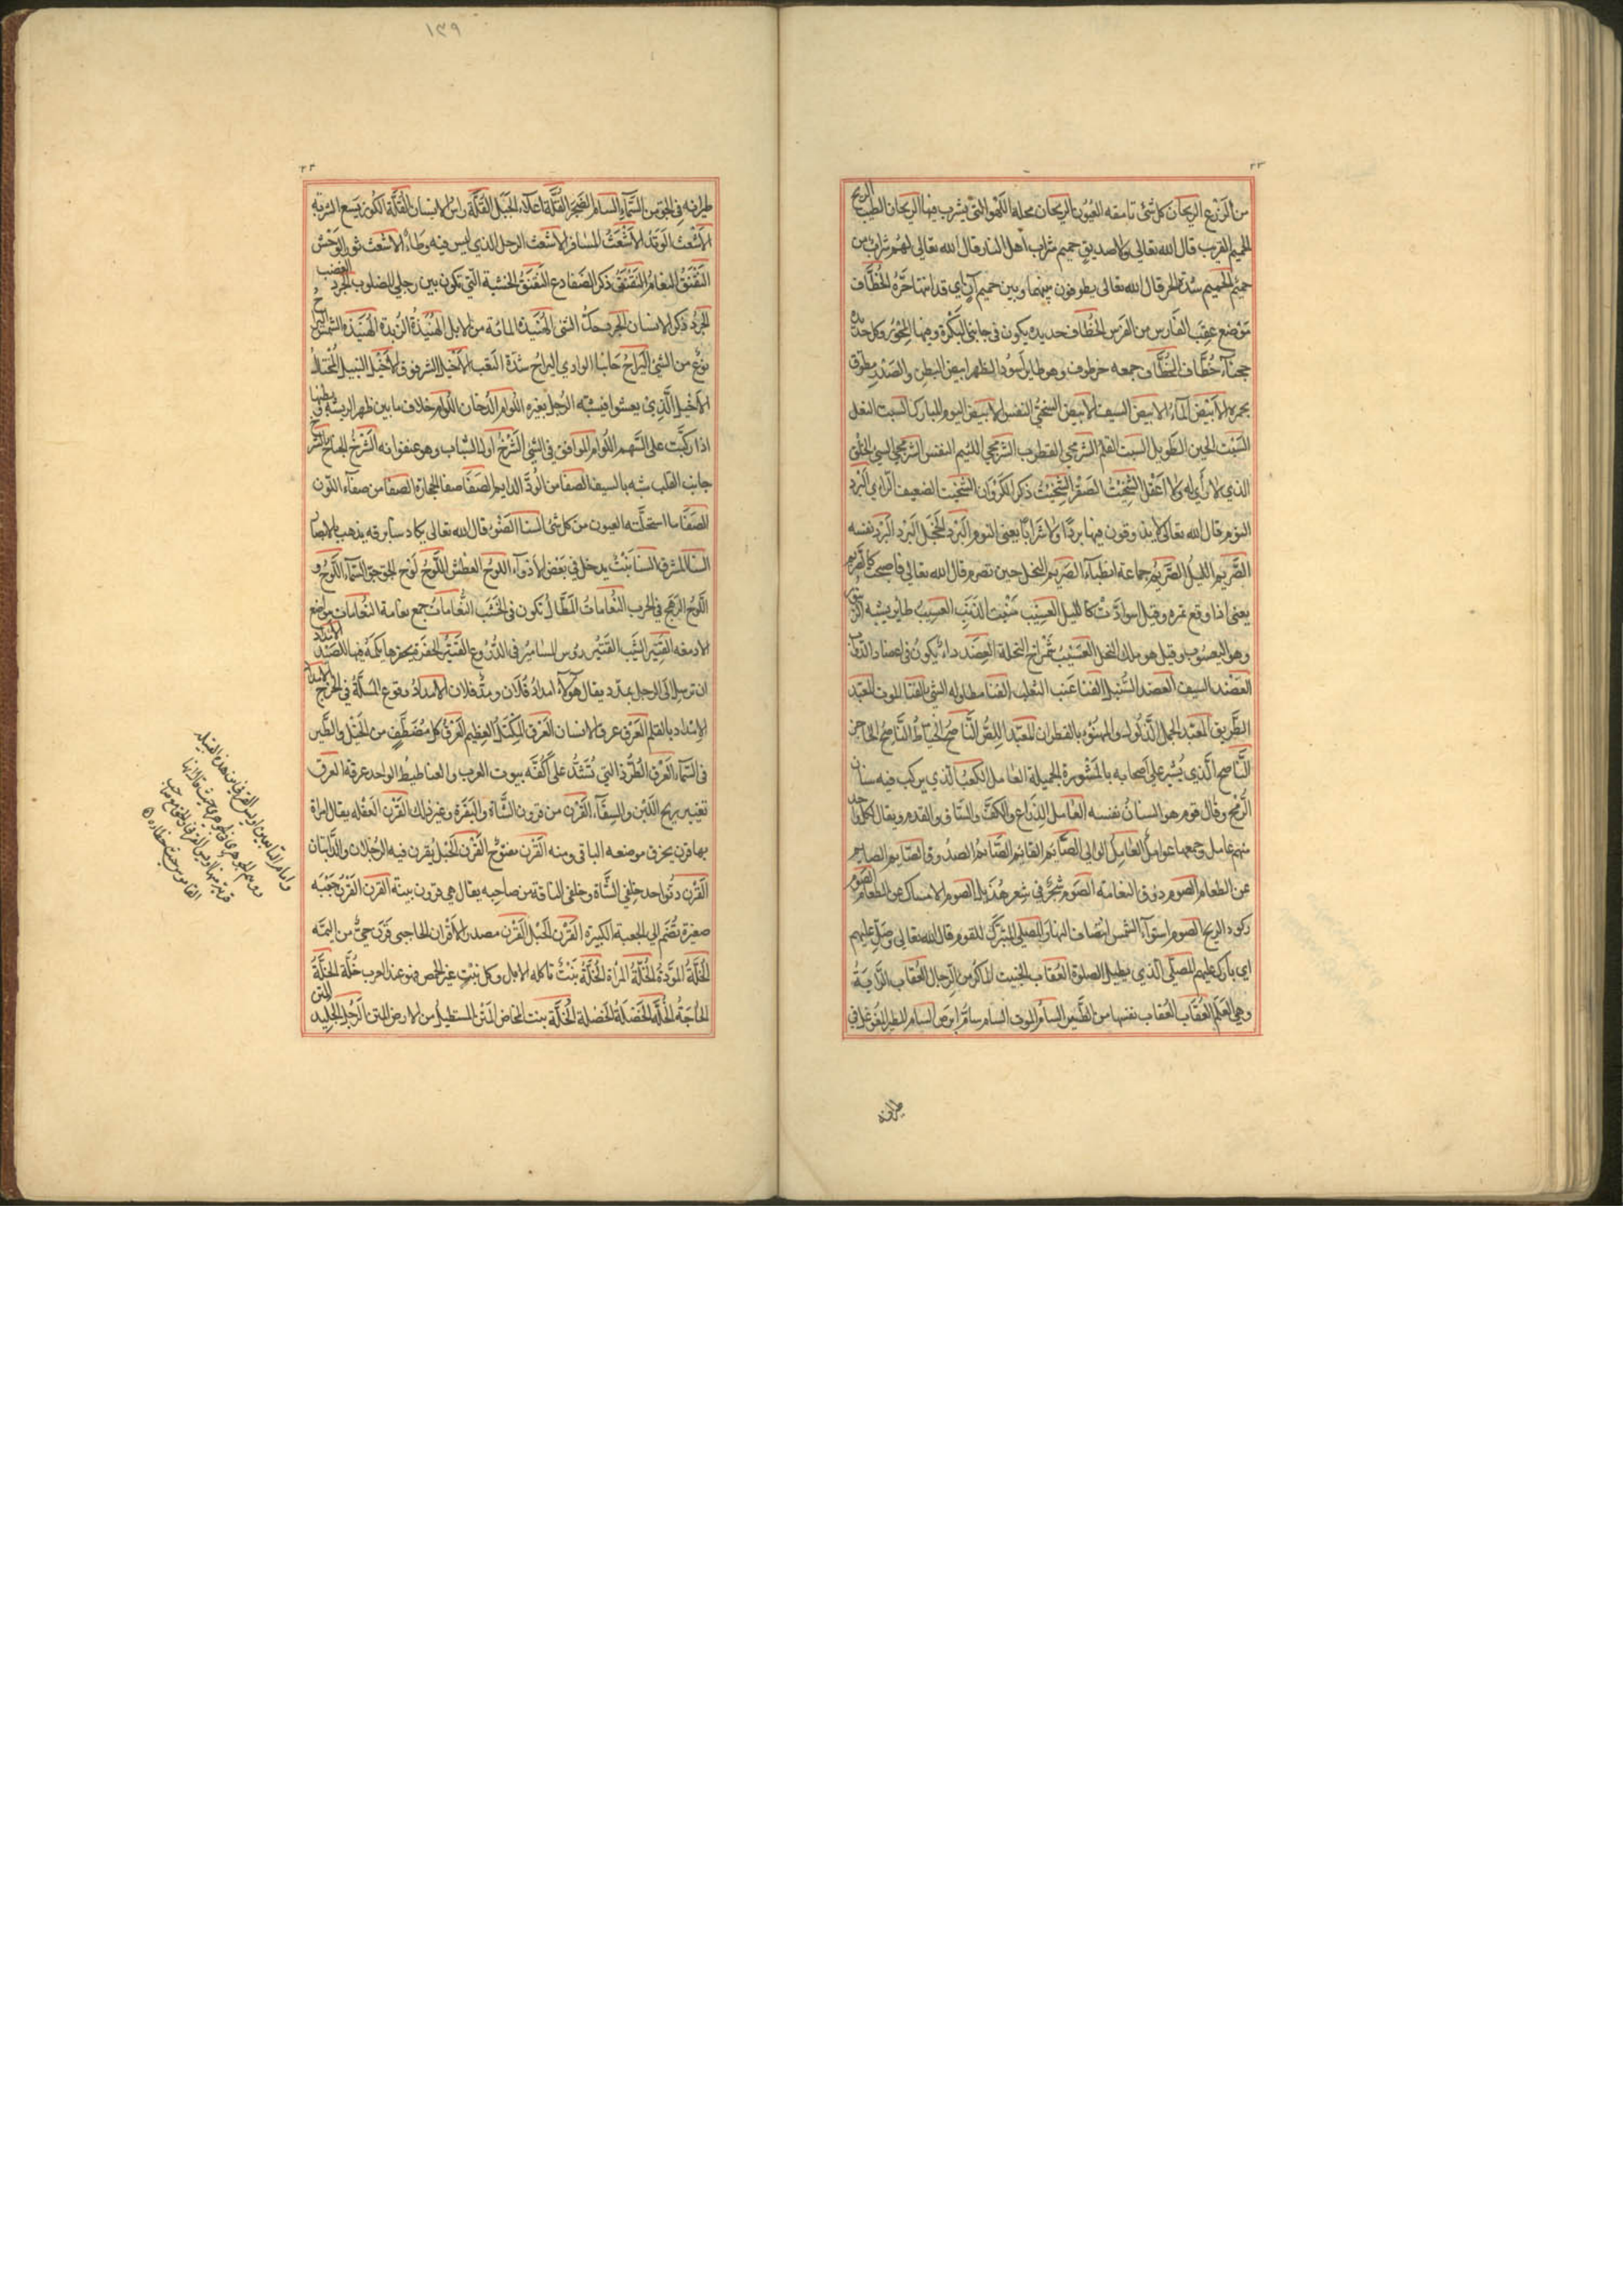 من الزرع الريحان كل شيء تامقه العيون الريحان محلة اللهو التي يشرب فيها الريحان الطيب الريح
الحميم القريب قال الله تعالى ولا صديق حميم شراب أهل النار قال الله تعالى لهم شراب من
حميم الحميم شدة الحر قال الله تعالى يطوفون بينها وبين حميم آن اي قد انتها حره الخطاف
موضع عقب الفارس من الفرس الخطاف حديده يكون في جانبي البكرة وفيها المحور وكل حديدة
حجناء خطاف الخطاف جمعه خطاطيف وهو طاير اسود الظهر ابيض البطن والصدر مطوق
بحمره الابيض الماء الابيض السيف الابيض السخي النفس الابيض اليوم المبارك السبت النعل
السبت الحين الطويل السبت القلم الشرمحي القطوب الشرمحي اللئيم النفس الشرمحي السيئ الخلق
الذي لا رأي له ولا عقل الشخيت الصقر الشخيت ذكر الكروان الشخيت الضعيف الراي البرد
النوم قال الله تعالى لا يذوقون فيها بردا ولا شرابا يعني النوم البرد الخجل البرد البرد نفسه
الصريم الليل الصريم جماعة الظباء الصريم النخل حين تصرم قال الله تعالى فاصبحت كالصريم
يعني اذا وقع ثمره وقيل اسوادت كالليل العسيب منبت الذنب العسيب طاير يشبه الزنبور
وهو اليعسوب وقيل هو ملك النحل العسيب شمراخ النخلة العضد داء يكون في اعضاد الدواب
العضد السيف العضد السنبل الفنا عنب الثعلب الفنا مطاوله الشيء بالفنا الموت المعبد
الطريق المعبد الجمل الذلول والمهنوء بالقطران المعبد اللص الناصح الخياط الناصح الحاجز
الناصح الذي يشير على أصحابه بالمشورة الجميلة العامل الكعب الذي يركب فيه سنان
الرمح وقال قوم هو السنان نفسه العامل الذراع والكف والساق والقدم ويقال لكل واحد
منهم عامل وجمعها عوامل العامل الوالي الصائم القائم الصائم الصد وق الصائم الصايم
عن الطعام الصوم ذرق النعامة الصوم شجر في شعر هذيل الصوم الامساك عن الطعام الصوم
ركود الريح الصوم استواء الشمس انتصاف النهار المصلي المبرك للقوم قال الله تعالى وصل عليهم
اي بارك عليهم المصلي الذي يطيل الصلوة العقاب الخبيث الماكر من الرجال العقاب الراية
وهي العلم العقاب العقاب نفسها من الطير السام الموت السام سام ابرص السام الطير الفوغلافي
طيرانه
٢٣
١٣٩
طيرانه في الجو من السماء السام الضجر القلة اعلاء الجبل القلة راس الانسان القلة الكوز يسع الشربة
الاشعث الوتد الاشعث المسافر الاشعث الرجل الذي ليس فيه وطاء الاشعث ثور الوحش
النقنق النعام النقنق ذكر الضفادع النقنق الخشبة التي تكون بين رجلي المصلوب الجرد الغضب
الجرد ذكر الانسان الجرد حك الشيء الهنيدة المائة من الابل الهنيدة الزبدة الهنيدة الشمس البراح
نوع من الشيء البراح جانبا الوادي البراح شدة التعب الاخيل الشرقرق الاخيل النبيل المختال
الاخيل الذي يعشوا فيشبه الرجل بغيره اللوام الدخان اللوام خلاف ما بين ظهر الريشة في بطنها
اذا ركبت على السهم اللوام الموافق في الشيء الشرخ اول الشباب وهو عنفوانه الشرخ
جانب القلب شبه بالسيف الصفا من الود الدايم الصفا صفا الحجارة الصفا من صفاء اللون
الصفا ما استحلته العيون من كل شيء السنا الضوء قال الله تعالى يكاد سنا برقه يذهب بالابصار
السنا الشرف السنا نبت يدخل في بعض الادواء اللوح العطش اللوح لوح الجو جو السماء اللوح
اللوح الرهج في الحرب النعامات المظال تكون في الخشب النعامات جمع نعامة النعامات مواضع
الادمغه القتير الشيب القتير رؤس المسامير في الدروع القتير الحفرة يحفرها يكمن فيها للصيد الامداد
ان ترسل الى الرجل بمدد يقال هولاء امداد فلان ومد فلان الامداد وقوع المسلة في الجرح الامداد
الامداد بالقلم العرق عرق الانسان العرق المكتل العظيم العرق كل مصطف من الخيل والطير
في السماء العرق الطرة التي تشد على اكفه بيوت العرب والعناطيط الواحد عرقة العرق
تغيير ريح اللبن والسقاء القرن من قرون الشاة والبقرة وغير ذلك القرن العفله يقال امراة
بها قرن يحرق موضعه الباقي ومنه القرن مفتوح القرن الحبل يقرن فيه الرجلان والدابتان
القرن دنو احد خلفي الشاة وخلفي الناقة من صاحبه يقال هي قرون بينة القرن القرن جعبه
صغيرة تضم الى الجعبة الكبيرة القرن الحبل القرن مصدر الاقران الحاجبي قرن حي من اليمن
الخلة المودة الخلة المراة الخلة نبت تاكله الابل وكل نبت غير الحمض فهو عند العرب خلة الخلة
الحاجة الخلة الخضلة الخضلة الخلة بنت المخاض المتن المستطيل من الارض المتن الرجل الجليد المتن